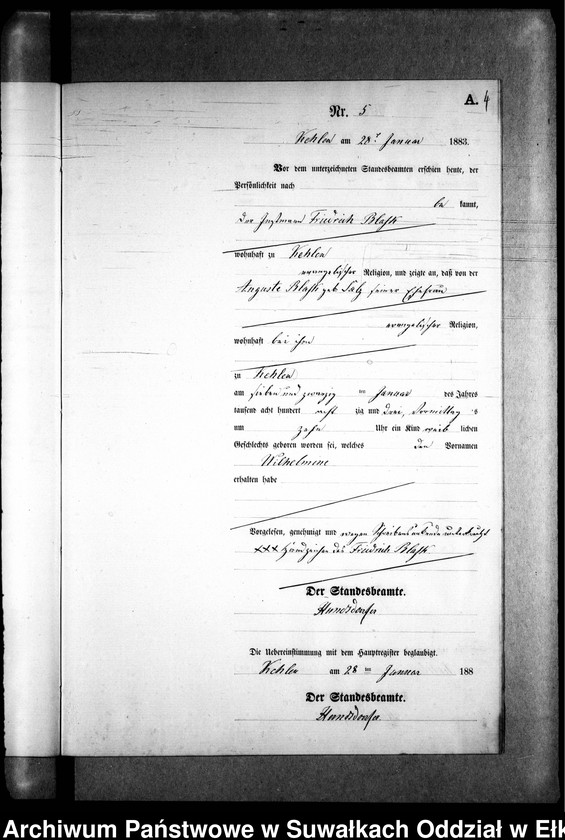 A. 4
Nr. 5
Kehlen am 28t Januar 1883.
Vor dem unterzeichneten Standesbeamten erschien heute, der
Persönlichkeit nach
be kannt,
der Instmann Friedrich Blask
wohnhaft zu Kehlen
evangelischer Religion, und zeigte an, daß von der
Auguste Blask geb. seiner Ehefrau
evangelischer Religion,
wohnhaft bei ihm
zu Kehlen
am sieben und zwanzig ten Januar des Jahres
tausend acht hundert acht zig und drei, Vormittag s
um zehn Uhr ein Kind weib lichen
Geschlechts geboren worden sei, welches den Vornamen
Wilhelmine
erhalten habe
Vorgelesen, genehmigt und wegen Schreibensunkunde unterkreuzt
+++ Handzeichen des Friedrich Blask
Der Standesbeamte.
Hundsdorfer
Die Uebereinstimmung mit dem Hauptregister beglaubigt.
Kehlen am 28 ten Januar 188
Der Standesbeamte.
Hundsdorfer
Archiwum Państwowe w Suwałkach Oddział w Ełk